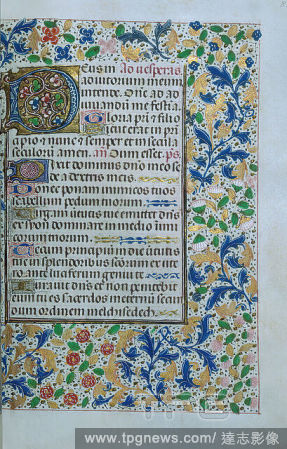 Deus in Ad vesperas.
adiutorium meum
intende. Dñe ad ad
iuuandū me festi
Gloria pr̄i & filio
sicut erat in prī
cipio & nunc & semper et in secula
seculorum. amen. an̄ Dum esset. ps̄
Dixit dominus dño meo se
de a dextris meis.
Donec ponam inimicos tuos
scabellum pedum tuorum.
Virgam uirtutis tue emittet dñs
ex syon dominare in medio inim
icorum tuorum.
Tecum principium in die uirtut
is tue in splendoribus sctōrum ex ute
ro ante luciferum genui te.
Iurauit dñs et non penitebit
eum tu es sacerdos in eternū secun
dum ordinem melchisedech.
www.tpgnews.com/ 達志影像